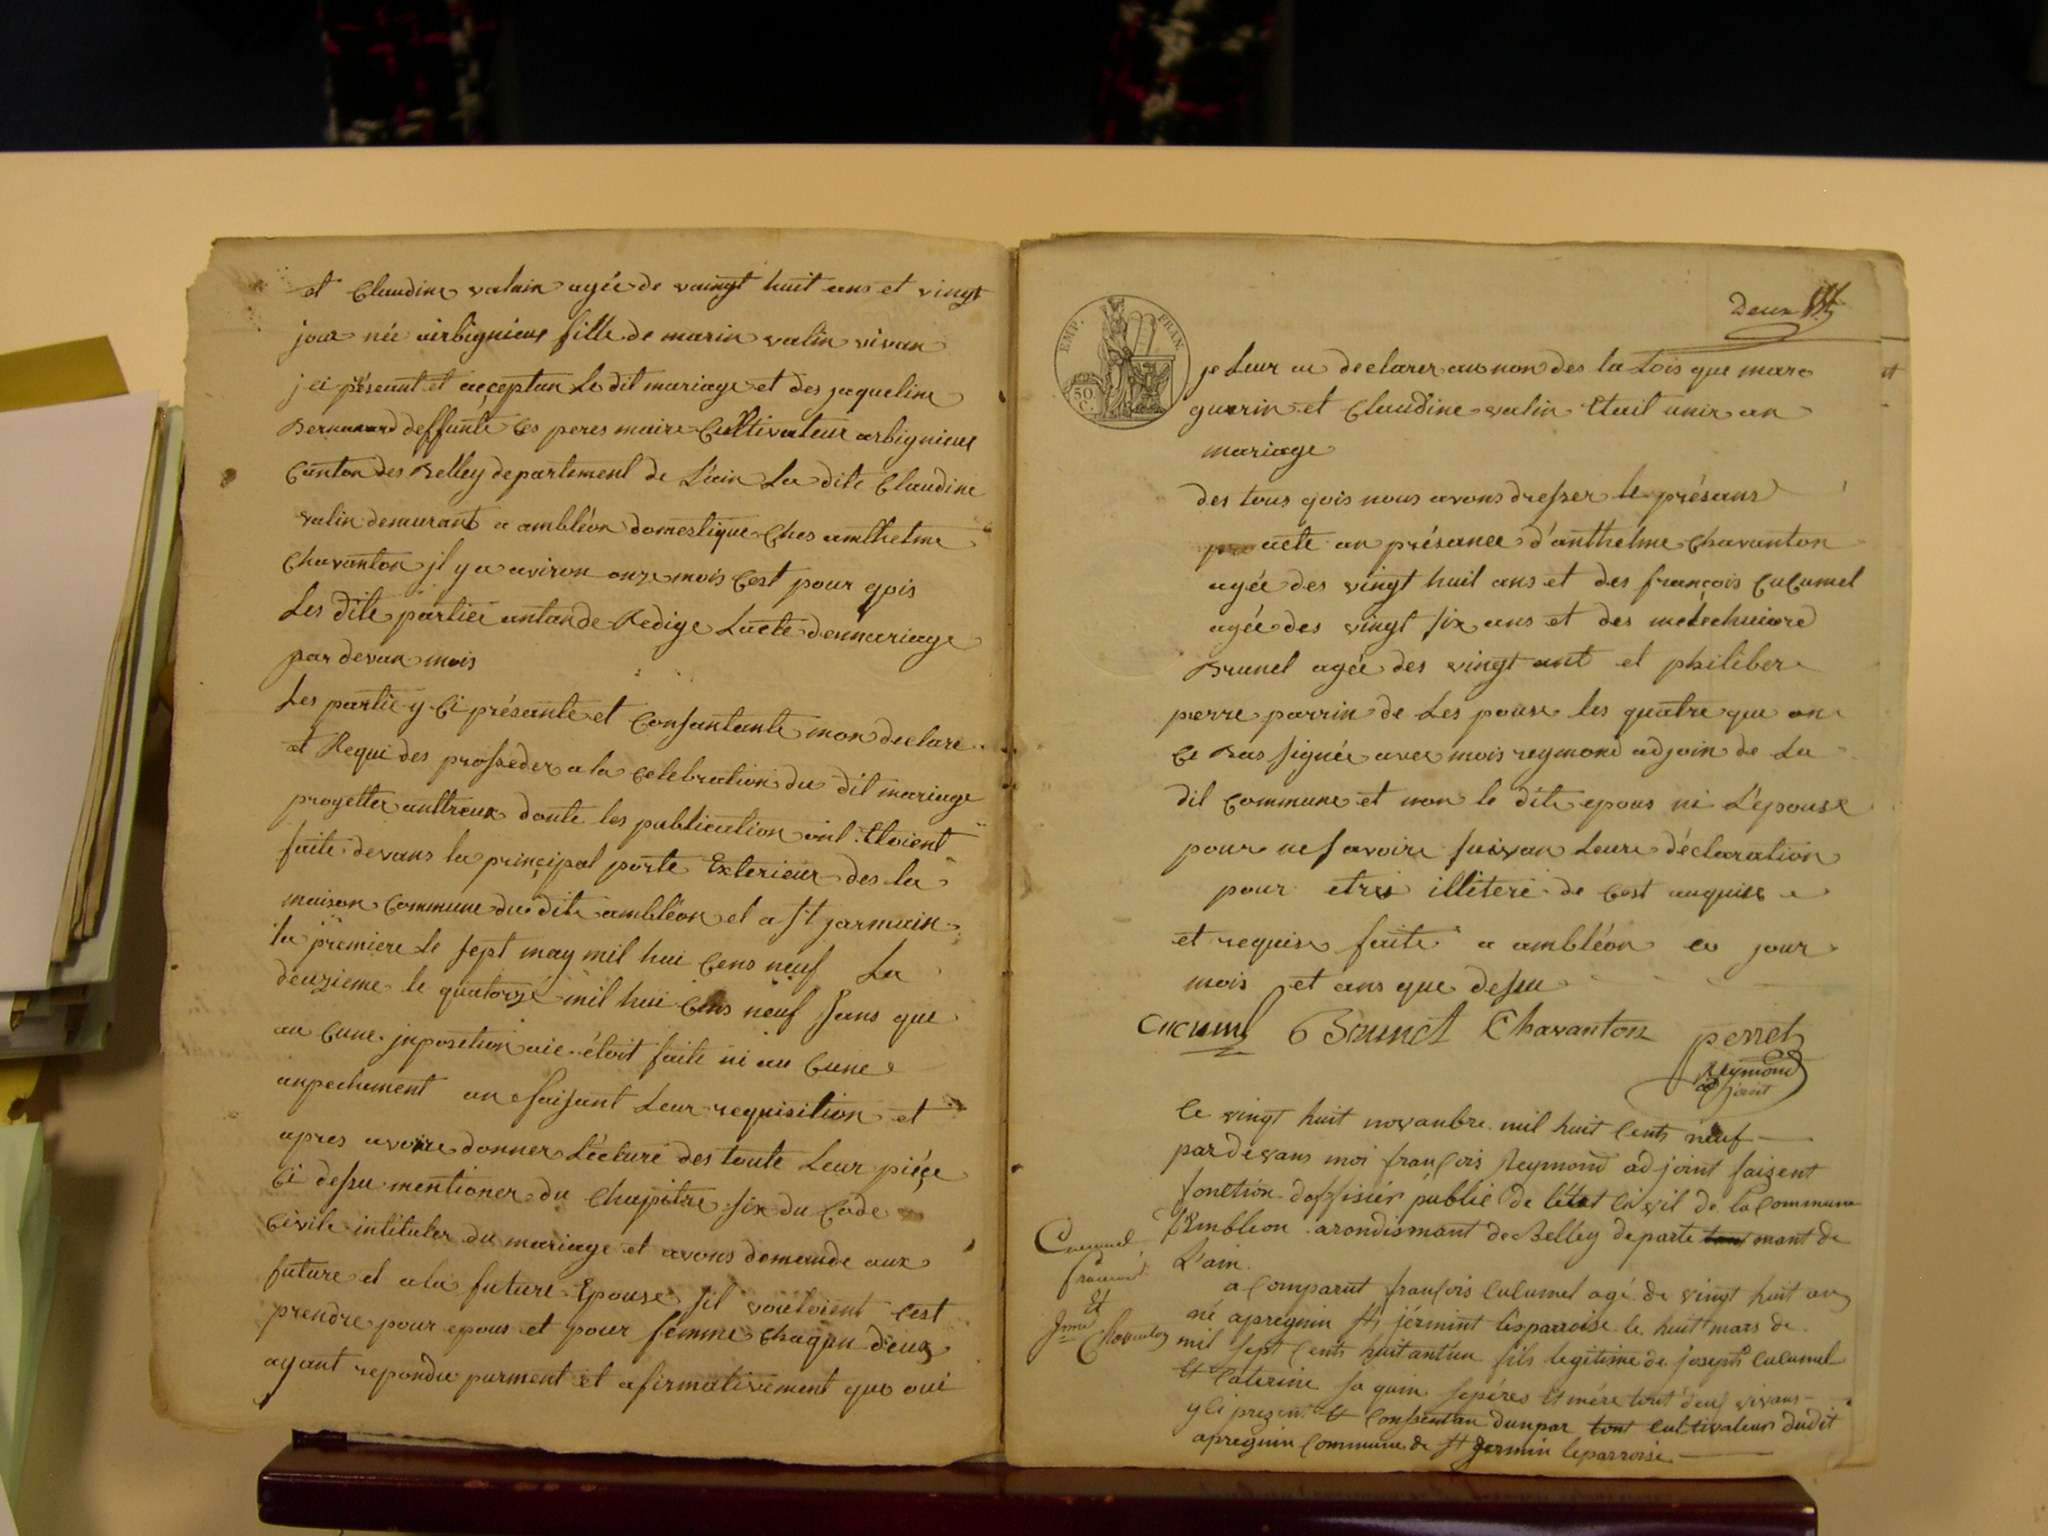 et Claudine valain agée de vaingt huit ans et vingt
jour née airbignieux fille de marin valin vivan
jci préseant et acceptan Le dit mariage et des jaqueline
Bernanard deffunte ces peres maire Cultivateur arbignieux
Canton des Belley departement de L'ain La dite Claudine
valin demurant a ambléon domestique Ches amthelme
Chavanton jl y a aviron onze mois Cest pour qois
Les dite partiee antande Redige Lacte denmariage
par devan mois
Les partie y Ci présante et Consantante mon declare
et Requi des prosseder a la Celebration du dit mariage
progetter anttreux donte les publication ont Etoient
faite devans la principal porte Exterieur des la
maison Commune du dite ambléon et a St jarmain
la premiere le sept may mil hui Cens neuf La
deuzieme le quatorze mil hui Cens neuf Sans que
au Cune jnposition aie étoit faite ni au Cune
anpechement an faisant Leur requisition et
apres avoire donner Lécture des toute Leur piéçe
Ci dessu mentioner du Chapitre six du Code
Civile intituler du mariage et avons demande aux
future et a la future Epouse sil vouloient Cest
prendre pour epous et pour femme Chaqun deux
ayant repondu purment et afirmativement que oui
Deux
EMP. FRAN.
50 C.
je Leur ai declarer au non des la Lois que marc
guerin et Claudine valin Etait unir an
mariage
des tous qois nous avons dresser le présans
acte an présance d'anthelme Chavanton
agée des vingt huil ans et des françois Cucumel
agée des vingt six ans et des
Brunel agée des vingt ant et philiber
pierre parrin de Les pouse les quatre que on
Ce Bas signée avec mois reymond adjoin de La
dit Commune et non le dite epous ni L'epouse
pour ne savoire suivan Leure déclaration
pour etre illitere de Cest anquise
et requise faite a ambléon ce jour
mois et ans que dessu
Cucumel Brunet Chavanton perret
Reymond
adjoint
le vingt huit novanbre mil huit Cents neuf
pardevans moi franCois Reymond adjoint faizent
fonction doffisiér publié de létat Civil de la Commune
d'Embléon arondismant de Belley departe mant de
L'ain.
Cucumel
francois
Et
Jnne
Chavanton
a Comparut franCois Cucumel agé de vingt huit ans
né apregnin St jérmint lesparroise le huit mars de
mil sept Cents huitant'un fils legitime de joseph Cucumel
Et Caterine ja quin sepéres Et mére tout deux vivans
y Ci present Et Consentan dunpar Cultivateur dudit
apregnin Commune de St jermin leparroise